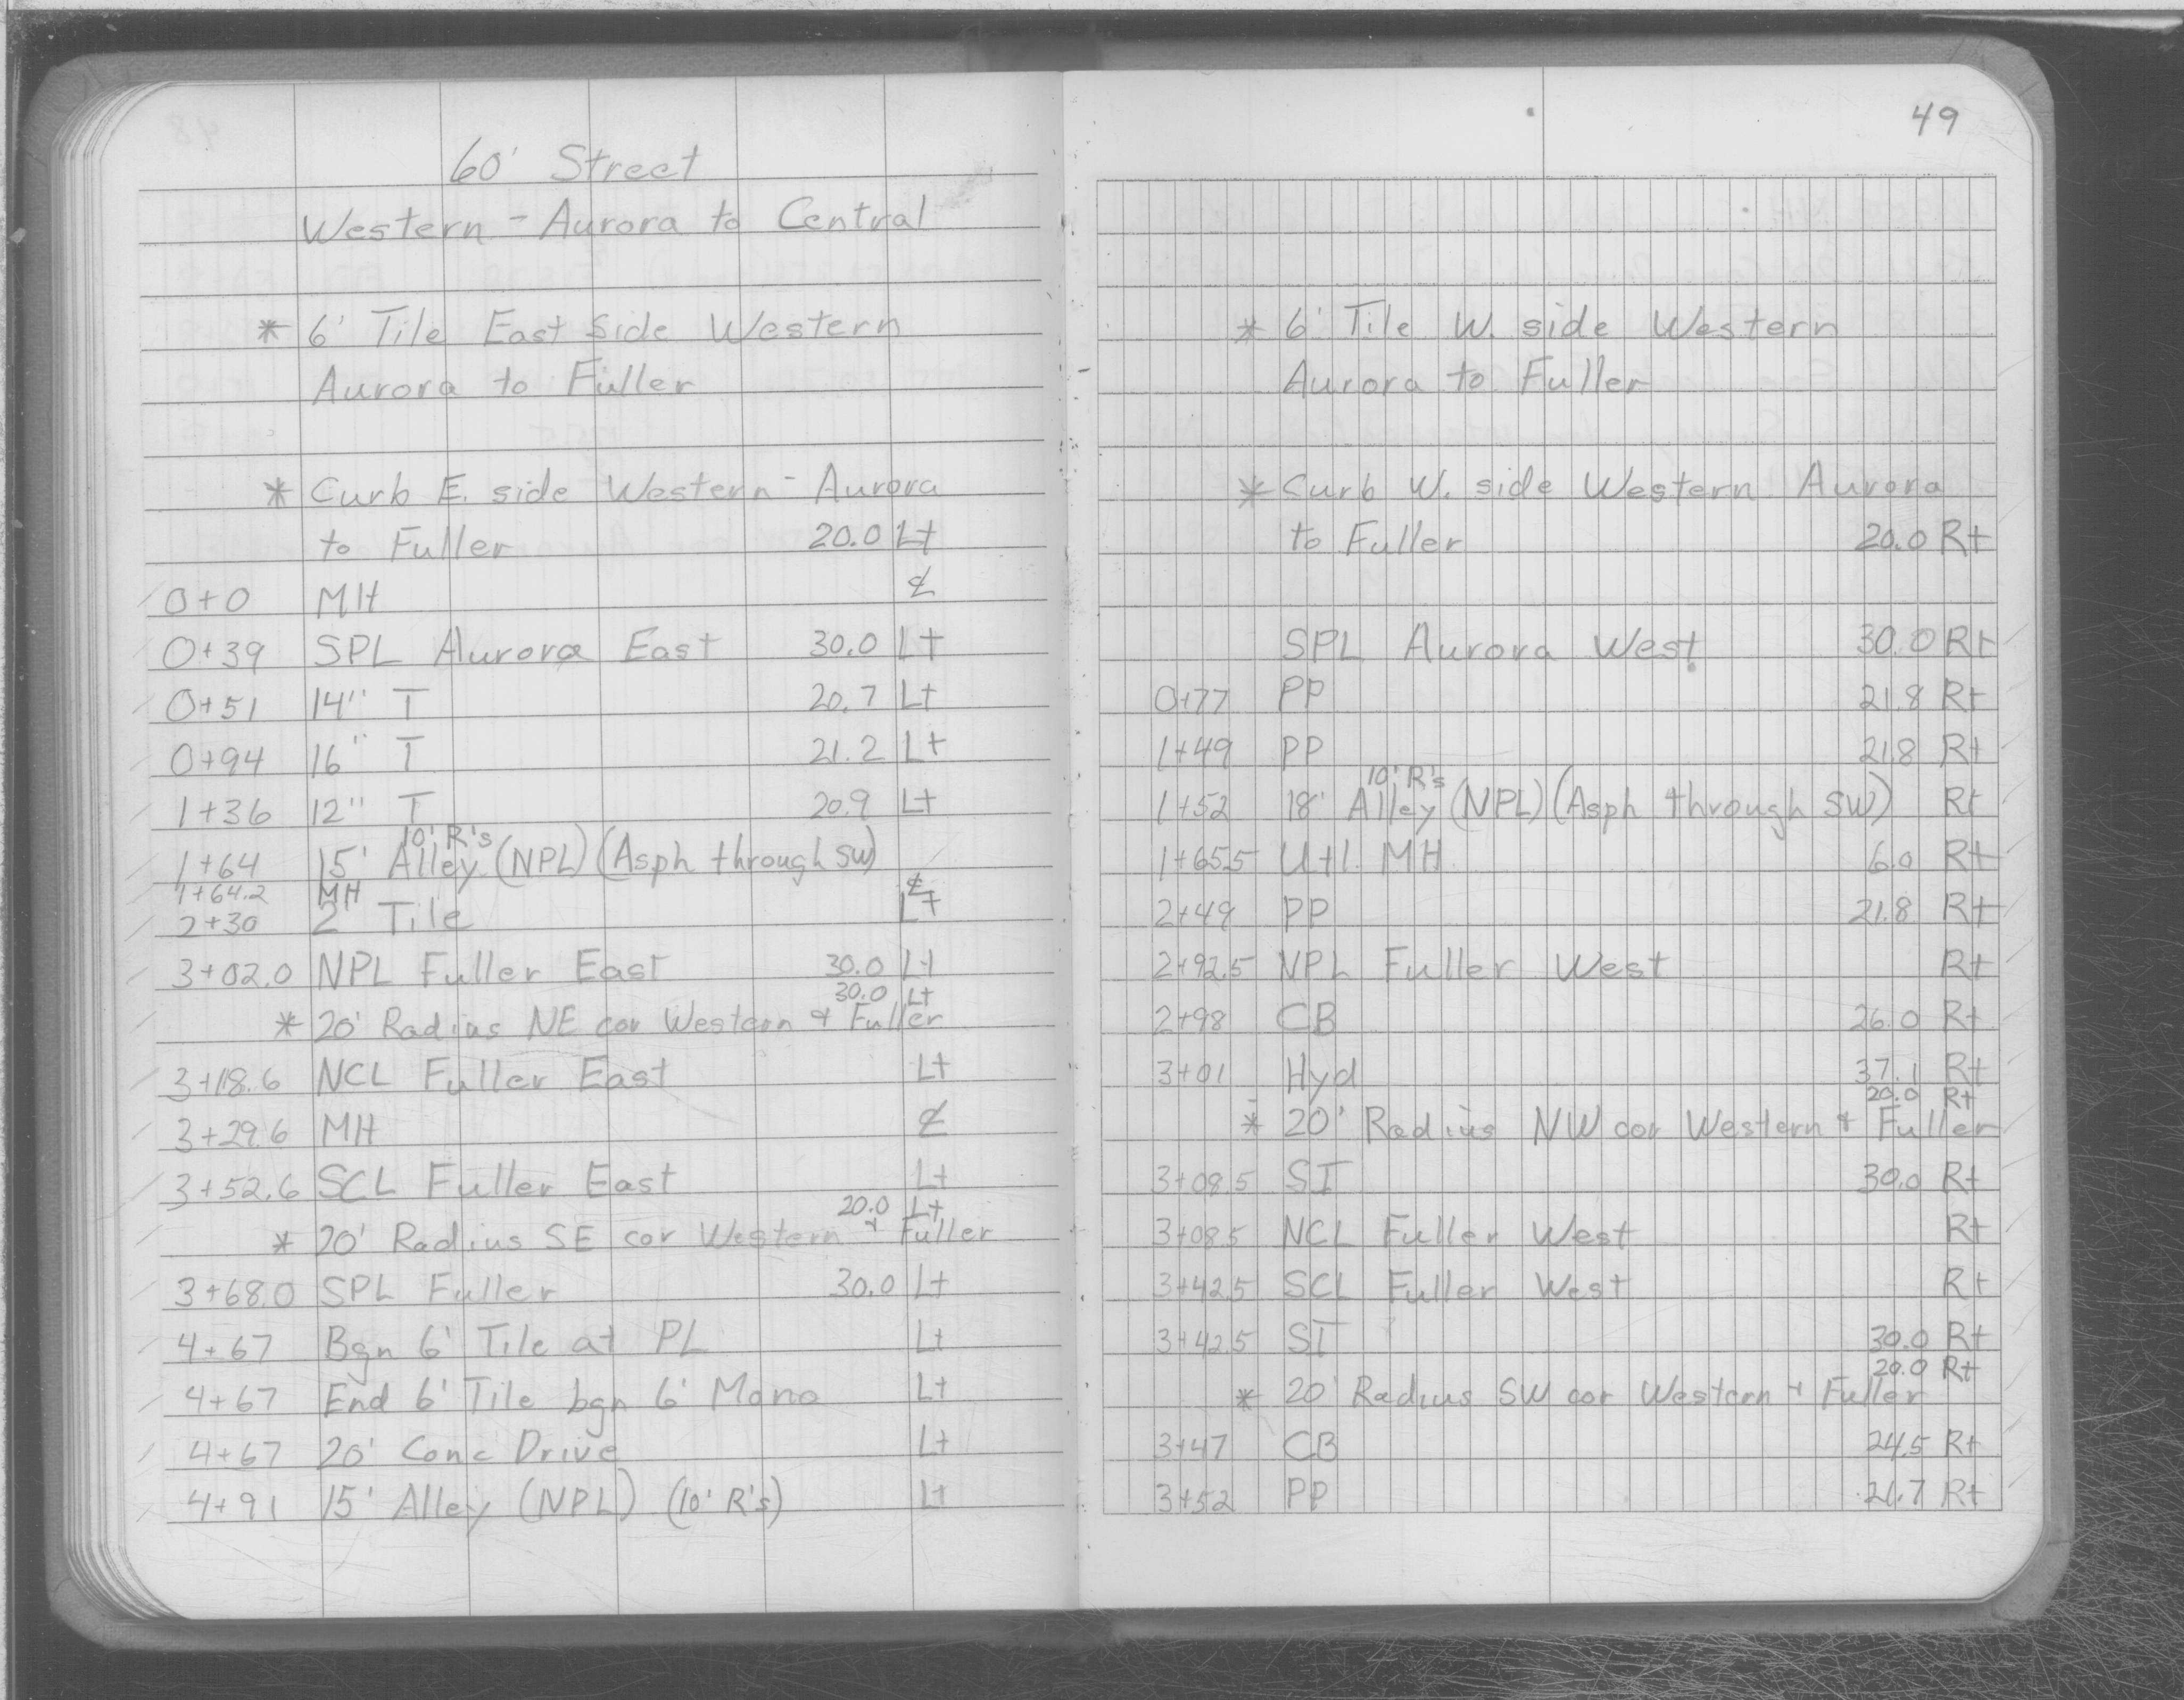 60' Street
Western - Aurora to Central
* 6' Tile East Side Western
Aurora to Fuller
* Curb E. side Western - Aurora
to Fuller 20.0 Lt
0+0 MH ℄
0+39 SPL Aurora East 30.0 Lt
0+51 14" T 20.7 Lt
0+94 16" T 21.2 Lt
1+36 12" T 20.9 Lt
10' R's
1+64 15' Alley (NPL) (Asph through SW)
1+64.2 MH ℄
2+30 2" Tile Lt
3+02.0 NPL Fuller East 30.0 Lt
30.0 Lt
* 20' Radius NE cor Western & Fuller
3+18.6 NCL Fuller East Lt
3+29.6 MH ℄
3+52.6 SCL Fuller East Lt
20.0 Lt
* 20' Radius SE cor Western & Fuller
3+68.0 SPL Fuller 30.0 Lt
4+67 Bgn 6' Tile at PL Lt
4+67 End 6' Tile bgn 6' Mono Lt
4+67 20' Conc Drive Lt
4+91 15' Alley (NPL) (10' R's) Lt
49
* 6' Tile W. side Western
Aurora to Fuller
* Curb W. side Western Aurora
to Fuller 20.0 Rt
SPL Aurora West 30.0 Rt
0+77 PP 21.8 Rt
1+49 PP 21.8 Rt
10' R's
1+52 18' Alley (NPL) (Asph through SW) Rt
1+65.5 Utl. MH 6.0 Rt
2+49 PP 21.8 Rt
2+92.5 NPL Fuller West Rt
2+98 CB 26.0 Rt
3+01 Hyd 37.1 Rt
20.0 Rt
* 20' Radius NW cor Western & Fuller
3+08.5 SI 30.0 Rt
3+08.5 NCL Fuller West Rt
3+42.5 SCL Fuller West Rt
3+42.5 SI 30.0 Rt
20.0 Rt
* 20' Radius SW cor Western & Fuller
3+47 CB 24.5 Rt
3+52 PP 21.7 Rt